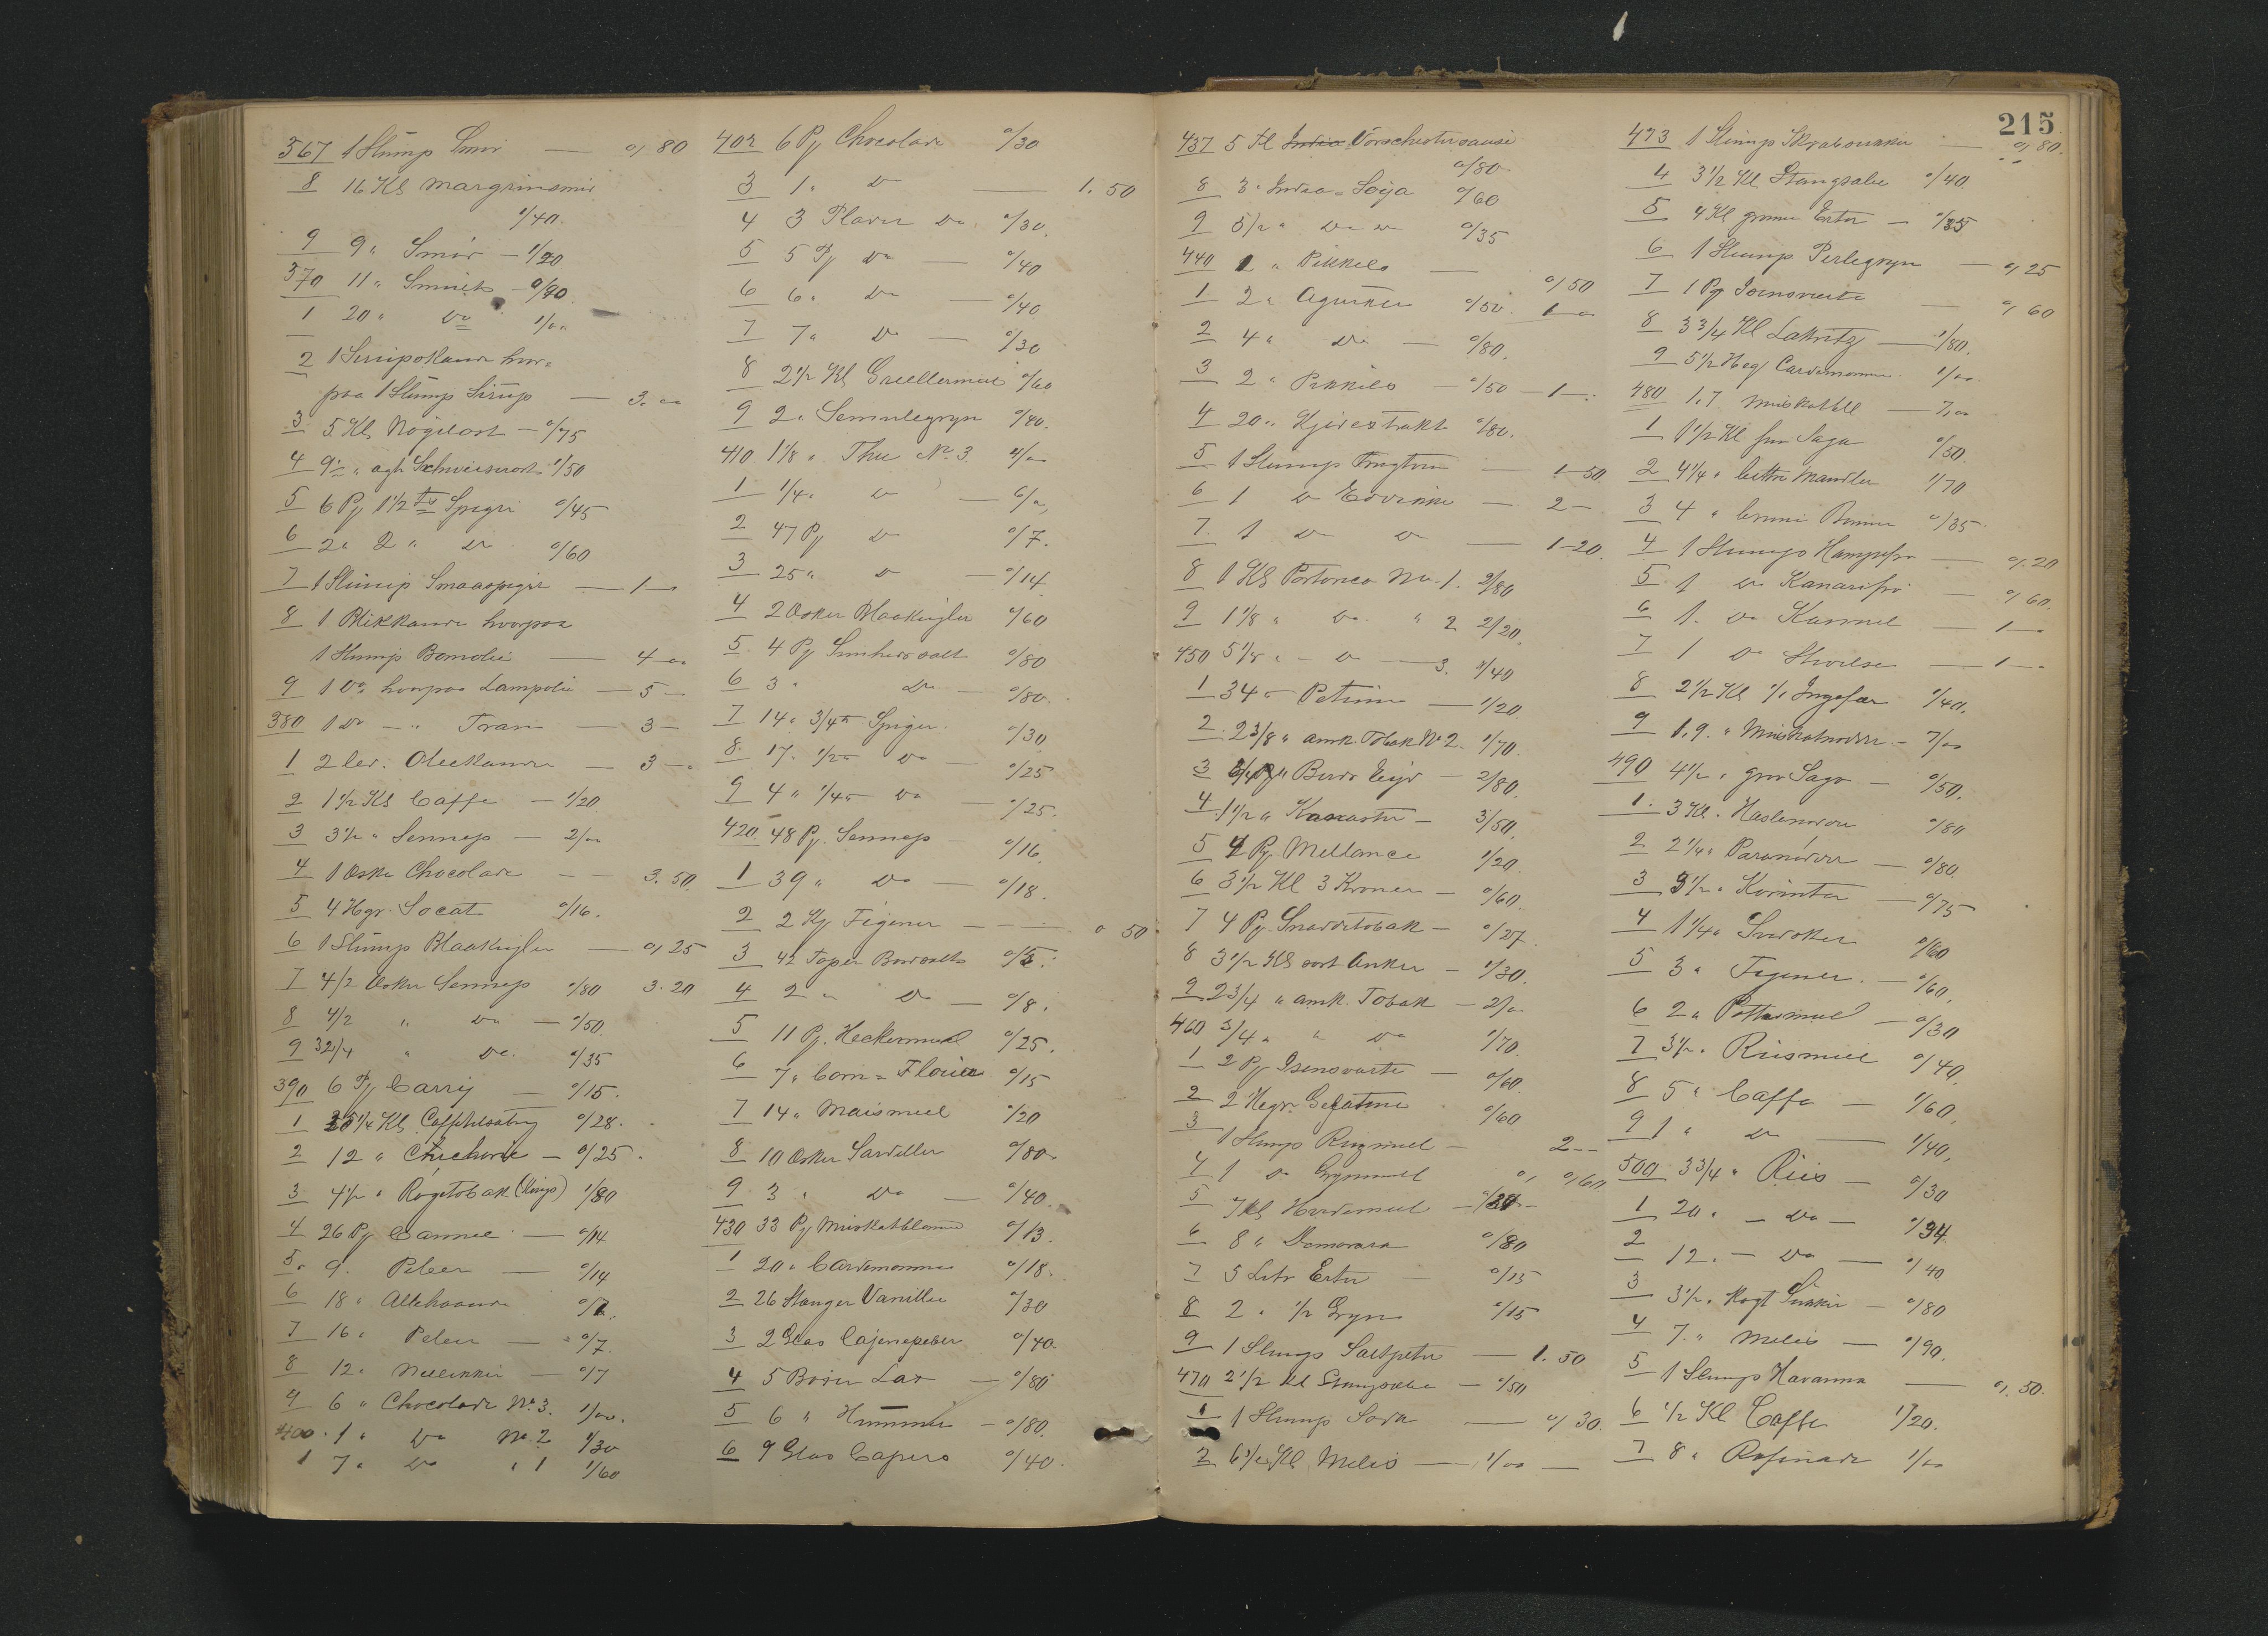 367 1 Slump Smör — 0,80
8 16 Kl Margrinsmör
0/40
9 9 " Smör — 1/20
370 11 " Smult — 0/90
1 20 " Do 1/00
2 1 Sirupskande hvor=
paa 1 Slump Sirup — 3.00
3 5 Kl Nögelost — 0/75
4 9½ " ægt Schweizerost 1/50
5 6 Pj 1½ " Spiger 0/45
6 2 " 2 " Do 0/60
7 1 Slump Smaaspiger — 1 —
8 1 Blikkande hvorpaa
1 Slump Bomolie — 4.00
9 1 Do hvorpaa Lampolie — 5 —
380 1 Do — " Tran — 3 —
1 2 led. Oliekander — 3 —
2 1½ Kl Caffe — 1/20
3 3½ " Sennep — 2/00
4 1 Æske Chocolade — 3.50
5 4 Hgr. Socat 0/16.
6 1 Slump Blaakugler — 0,25
7 4/2 Æsker Sennep 0/80 3.20
8 4/2 " Do — 0/50
9 32/4 " Do. 0/35
390 6 Pj Carry — 0/15.
1 25¼ Kl Caffeerstatning 0/28.
2 12 " Chichorie — 0/25.
3 4½ " Rögetobak (Kings) 1/80
4 26 Pj Cannel — 0/14
5 9. Peber — 0/14
6 18 " Allehaande 0/7.
7 16 " Peber — 0/7.
8 12 " Nelliker — 0/7
9 6 " Chocolade No. 3. 1/00.
400. 1 " Do No. 2 1/30
1 7 " Do " 1 1/60
402 6 Pj Chocolade 0/30
3 1 " Do — 1.50
4 3 Plader Do 0/30.
5 5 Pj Do — 0/40
6 6 " Do — 0/40
7 7 " Do — 0/30
8 2½ Kl 0/60
9 2 " Semulegryn 0/40.
410 1⅛ " The No. 3 4/00
1 ¼ " Do — 6/00
2 47 Pj Do 0/7.
3 25 " Do — 0/14
4 2 Æsker Blaakugler 0/60
5 4 Pj 0/80
6 3 " Do — 0/80
7 14 " 3/4" Spiger 0/30
8 17. 1/2" Do — 0/25
9 4 " 1/4" Do — 0/25.
420 48 Pj. Sennep — 0/16
1 39 " Do — 0/18.
2 2 Kj Figener — 0 50
3 42 Toper Bordsalt 0/5.
4 2 " Do — 0/8.
5 11 Pj. Heckermeel 0/25.
6 7 " Corn = Flour 0/15
7 14 " Maismeel 0/20
8 10 Æsker Sardeller 0/80
9 3 " Do — 0/40.
430 33 Pj Muskatblomme 0/13.
1 20 " Cardemomme 0/18.
2 26 Stanger Vanille 0/30
3 2 Glas Cajennepeber 0/40.
4 5 Boxer Lax — 0/80
5 6 " Hummer — 0/80.
6 9 Glas Capers 0/40.
437 5 Fl India Vorschestersause
0/80.
8 3 " India = Soija 0/60
9 5/2 " Do Do 0/35
440 1 " Pikkels — 0,50
1 2 " Agurker 0/50. 1 —
2 4 " Do — 0/80.
3 2 " Pikkels — 0/50 — 1 —
4 20 " Kjödextrakt 0/80.
5 1 Slump — 1.50.
6 1 Do Eddikke — 2 —
7. 1 Do Do — 1.20.
8 1 Kl Portorico No. 1. 2/80
9 1⅛ " Do. " 2 2/20.
450 5⅛ " — Do — 3. 1/40
1 34 " Petum — 1/20
2 2⅜ " amk. Tobak No 2. 1/70.
3 " Birds Eye — 2/80.
4 1½ " Kanaster — 3/50.
5 4 Pj. Mellance 1/20
6 3½ Kl 3 Kroner — 0/60.
7 4 Pj. Snaddetobak — 0/27.
8 3½ Kl sort Anker — 1/30.
9 2¾ " amk. Tobak — 2/00
460 ¾ " " Do 1/70.
1 2 Pj Isensværte — 0/60
2 2 Hegr. Gelatine 0/60
3 1 Slump Rugmeel — 2 —
4 1 Do Grynmeel 0,60
5 7 Kl Hvedemeel — 0/30 —
6 8 " Demerara 0/80
7 5 Litr Erter — 0/15
8 2 " ½ Gryn 0/15
9 1 Slump Saltpeter — 1.50
470 2½ Kl Stangsæbe — 0/50
1 1 Slump Soda — 0,30.
2 6½ Kl Melis — 1/00 —
215
473 1 Slump Skrabsukker — 0,80.
4 3½ Kl Stangsæbe 0/40.
5 4 Kl grønne Erter — 0/35
6 1 Slump Perlegryn — 0,25
7 1 Pj Isensværte — 0,60
8 3¾ Kl Lakritz — 1/80.
9 5½ Heg Cardemomme 1/00.
480 1.7 Muskatbl — 7,00
1 1½ Kl fin Sago 0/50.
2 4¼ " bittre Mandler 1/70
3 4 " brune Bønner 0/35
4 1 Slump Hampefrø — 0.20
5 1 Do Kanarifrø — 0,60.
6 1. Do Kummel — 1 —
7 1 Do Stivelse — 1 —
8 2½ Kl Ingefær 1/40.
9 1,9. " Muskatnødder — 7/00
490 4½ " grov Sago — 0/50.
1. 3 Kl. Hasselnødder 0/80
2 2¼ " Paranødder — 0/80.
3 3½ " Korinter — 0/75
4 1¼ " Svedsker 0/60
5 3 " Figener. — 0/60.
6 2 " Pottetmeel — 0/30
7 3½ " Riismeel 0/40.
8 5 " Caffe — 1/60.
9 1 " Do — 1/40.
500 3¾ " Riis — 0/30
1 20. — Do — 0/34
2 12. — Do — 0/40
3 3½ " Kogt Sukker — 0/80
4 7. " Melis — 0/90.
5 1 Slump Havanna — 0,50.
6 ½ Kl Caffe 1/20.
7 8 " Rafinade 1/00